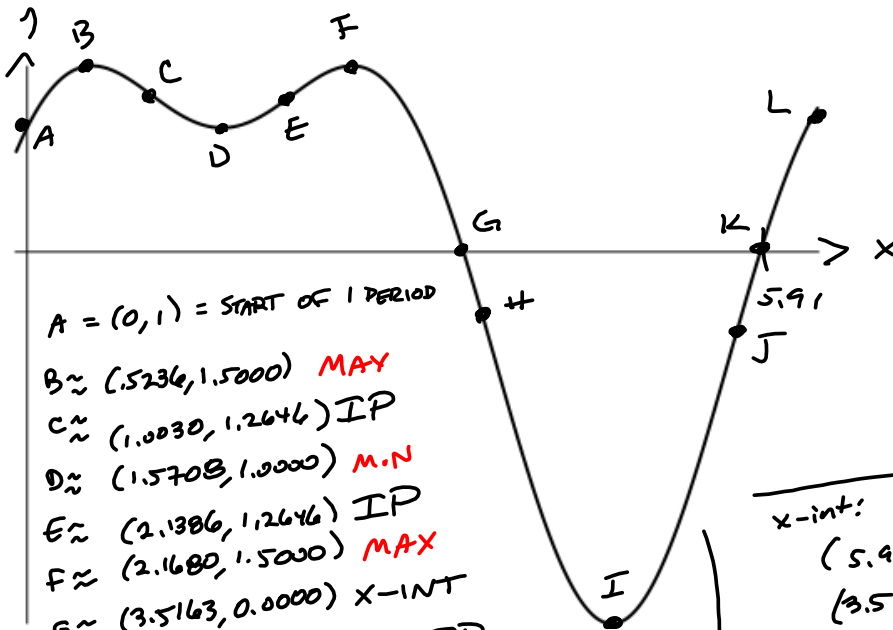 y
B
F
C
A
D
E
L
G
K
x
5.91
H
J
I
A = (0,1) = START OF 1 PERIOD
B≈ (.5236, 1.5000) MAX
C≈ (1.0030, 1.2646) IP
D≈ (1.5708, 1.0000) MIN
E≈ (2.1386, 1.2646) IP
F≈ (2.1680, 1.5000) MAX
G≈ (3.5163, 0.0000) X-INT
x-int:
(5.9
(3.5